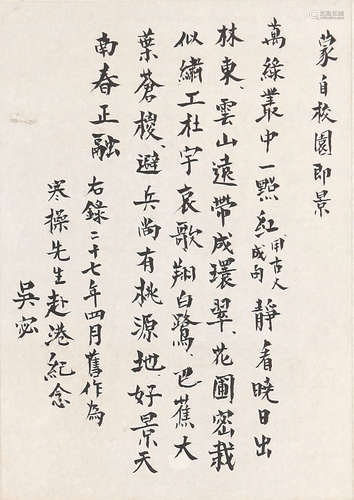 蒙自校園即景
萬綠叢中一點紅用古人成句靜看曉日出
林東、雲山遠帶成環翠、花圃密栽
似繡工杜宇哀歌翔白鷺、芭蕉大
葉蒼椶、避兵尚有桃源地、好景天
南春正融
右錄二十七年四月舊作為
寒操先生赴港紀念
吳宓